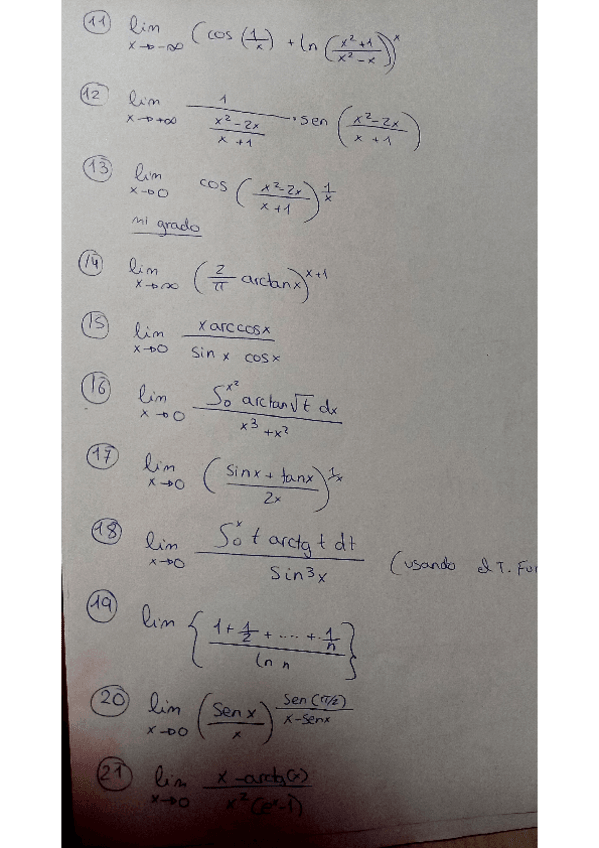 11 lim x→-∞ (cos(1/x) + ln((x²+1)/(x²-x)))^x
12 lim x→+∞ 1/((x²-2x)/(x+1)) · sen((x²-2x)/(x+1))
13 lim x→0 cos((x²-2x)/(x+1))^(1/x)
mi grado
14 lim x→∞ (2/π arctan x)^(x+1)
15 lim x→0 (x arccos x)/(sin x cos x)
16 lim x→0 (∫₀^(x²) arctan √t dx)/(x³+x²)
17 lim x→0 ((sin x + tan x)/(2x))^(1/x)
18 lim x→0 (∫₀^x t arctg t dt)/(sin³x) (usando el T. Fun
19 lim {(1 + 1/2 + .... + 1/n)/(ln n)}
20 lim x→0 (sen x/x)^(sen(π/2)/(x-sen x))
21 lim x→0 (x - arctg(x))/(x²(eˣ-1))